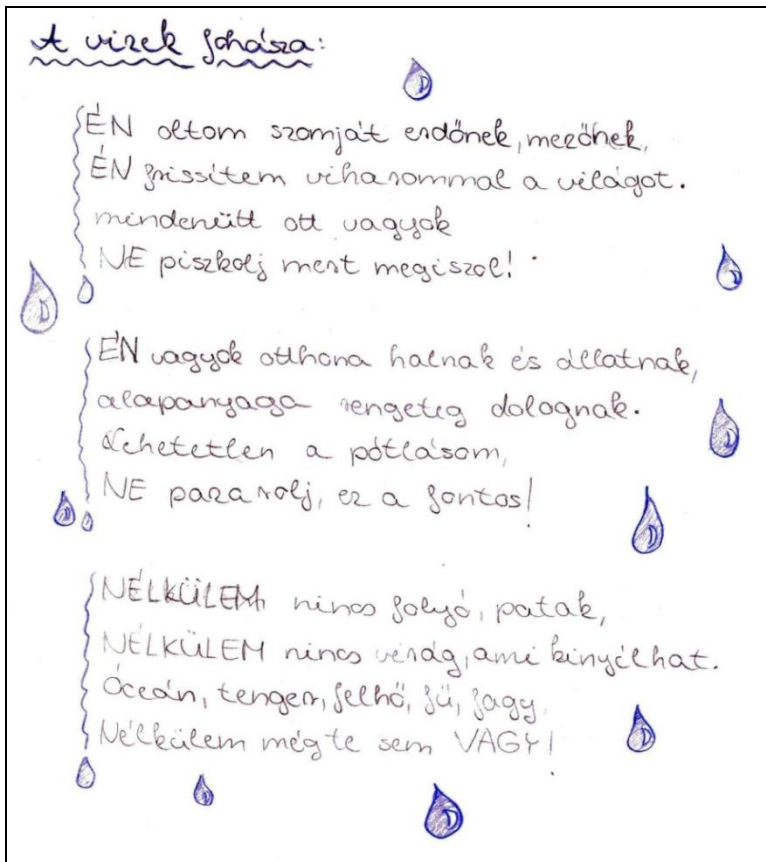 A vizek fohásza:
ÉN oltom szomját erdőnek, mezőnek,
ÉN frissítem viharommal a világot.
mindenütt ott vagyok
NE piszkolj mert megiszol!
ÉN vagyok otthona halnak és állatnak,
alapanyaga rengeteg dolognak.
Lehetetlen a pótlásom,
NE pazarolj, ez a fontos!
NÉLKÜLEM nincs folyó, patak,
NÉLKÜLEM nincs virág, ami kinyílhat.
Óceán, tenger, felhő, fű, fagy
Nélkülem mégte sem VAGY!